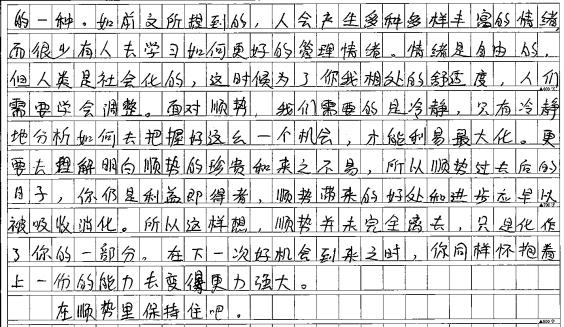 的一种。如前文所提到的，人会产生多种多样丰富的情绪，
而很少有人去学习如何更好的管理情绪。情绪是自由的，
但人类是社会化的，这时候为了你我相处的舒适度，人们
需要学会调整。面对顺势，我们需要的是冷静，只有冷静
地分析如何去把握好这么一个机会，才能利易最大化。更
要去理解明白顺势的珍贵和来之不易，所以顺势过去后的
日子，你仍是利益即得者，顺势带来的好处和进步应早以
被吸收消化。所以这样想，顺势并未完全离去，只是化作
了你的一部分。在下一次好机会到来之时，你同样怀抱着
上一份的能力去变得更力强大。
在顺势里保持住吧。